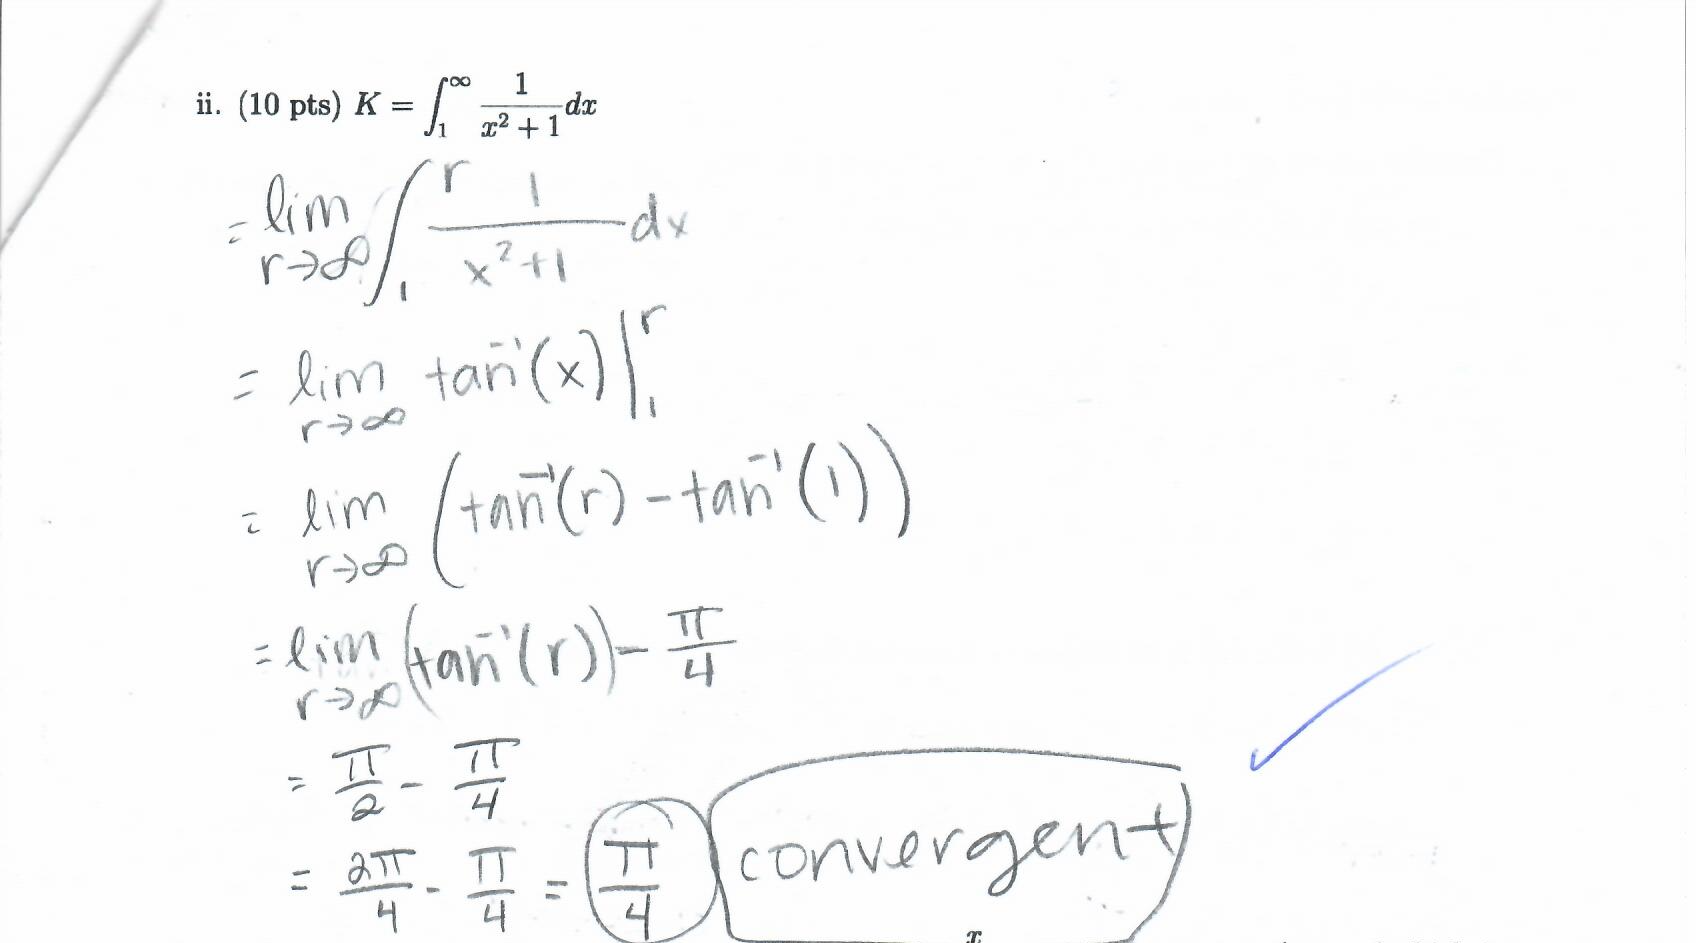 ii. (10 pts) K = ∫₁^∞ 1/(x² + 1) dx
= lim r→∞ ∫₁^r 1/(x²+1) dx
= lim r→∞ tan⁻¹(x) |₁^r
= lim r→∞ (tan⁻¹(r) - tan⁻¹(1))
= lim r→∞ (tan⁻¹(r)) - π/4
= π/2 - π/4
= 2π/4 - π/4 = π/4 convergent
x